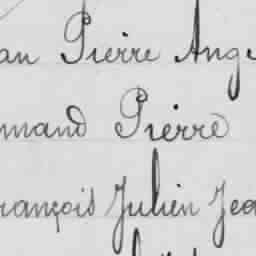 an Pierre Ang
mand Pierre
rançois Julien Jea